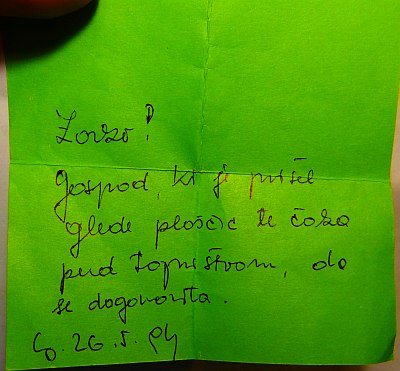 Zorzo!
Gospod, ki je prišel
glede ploščic te čaka
pred županstvom, da
se dogovorita.
26. 5. 04